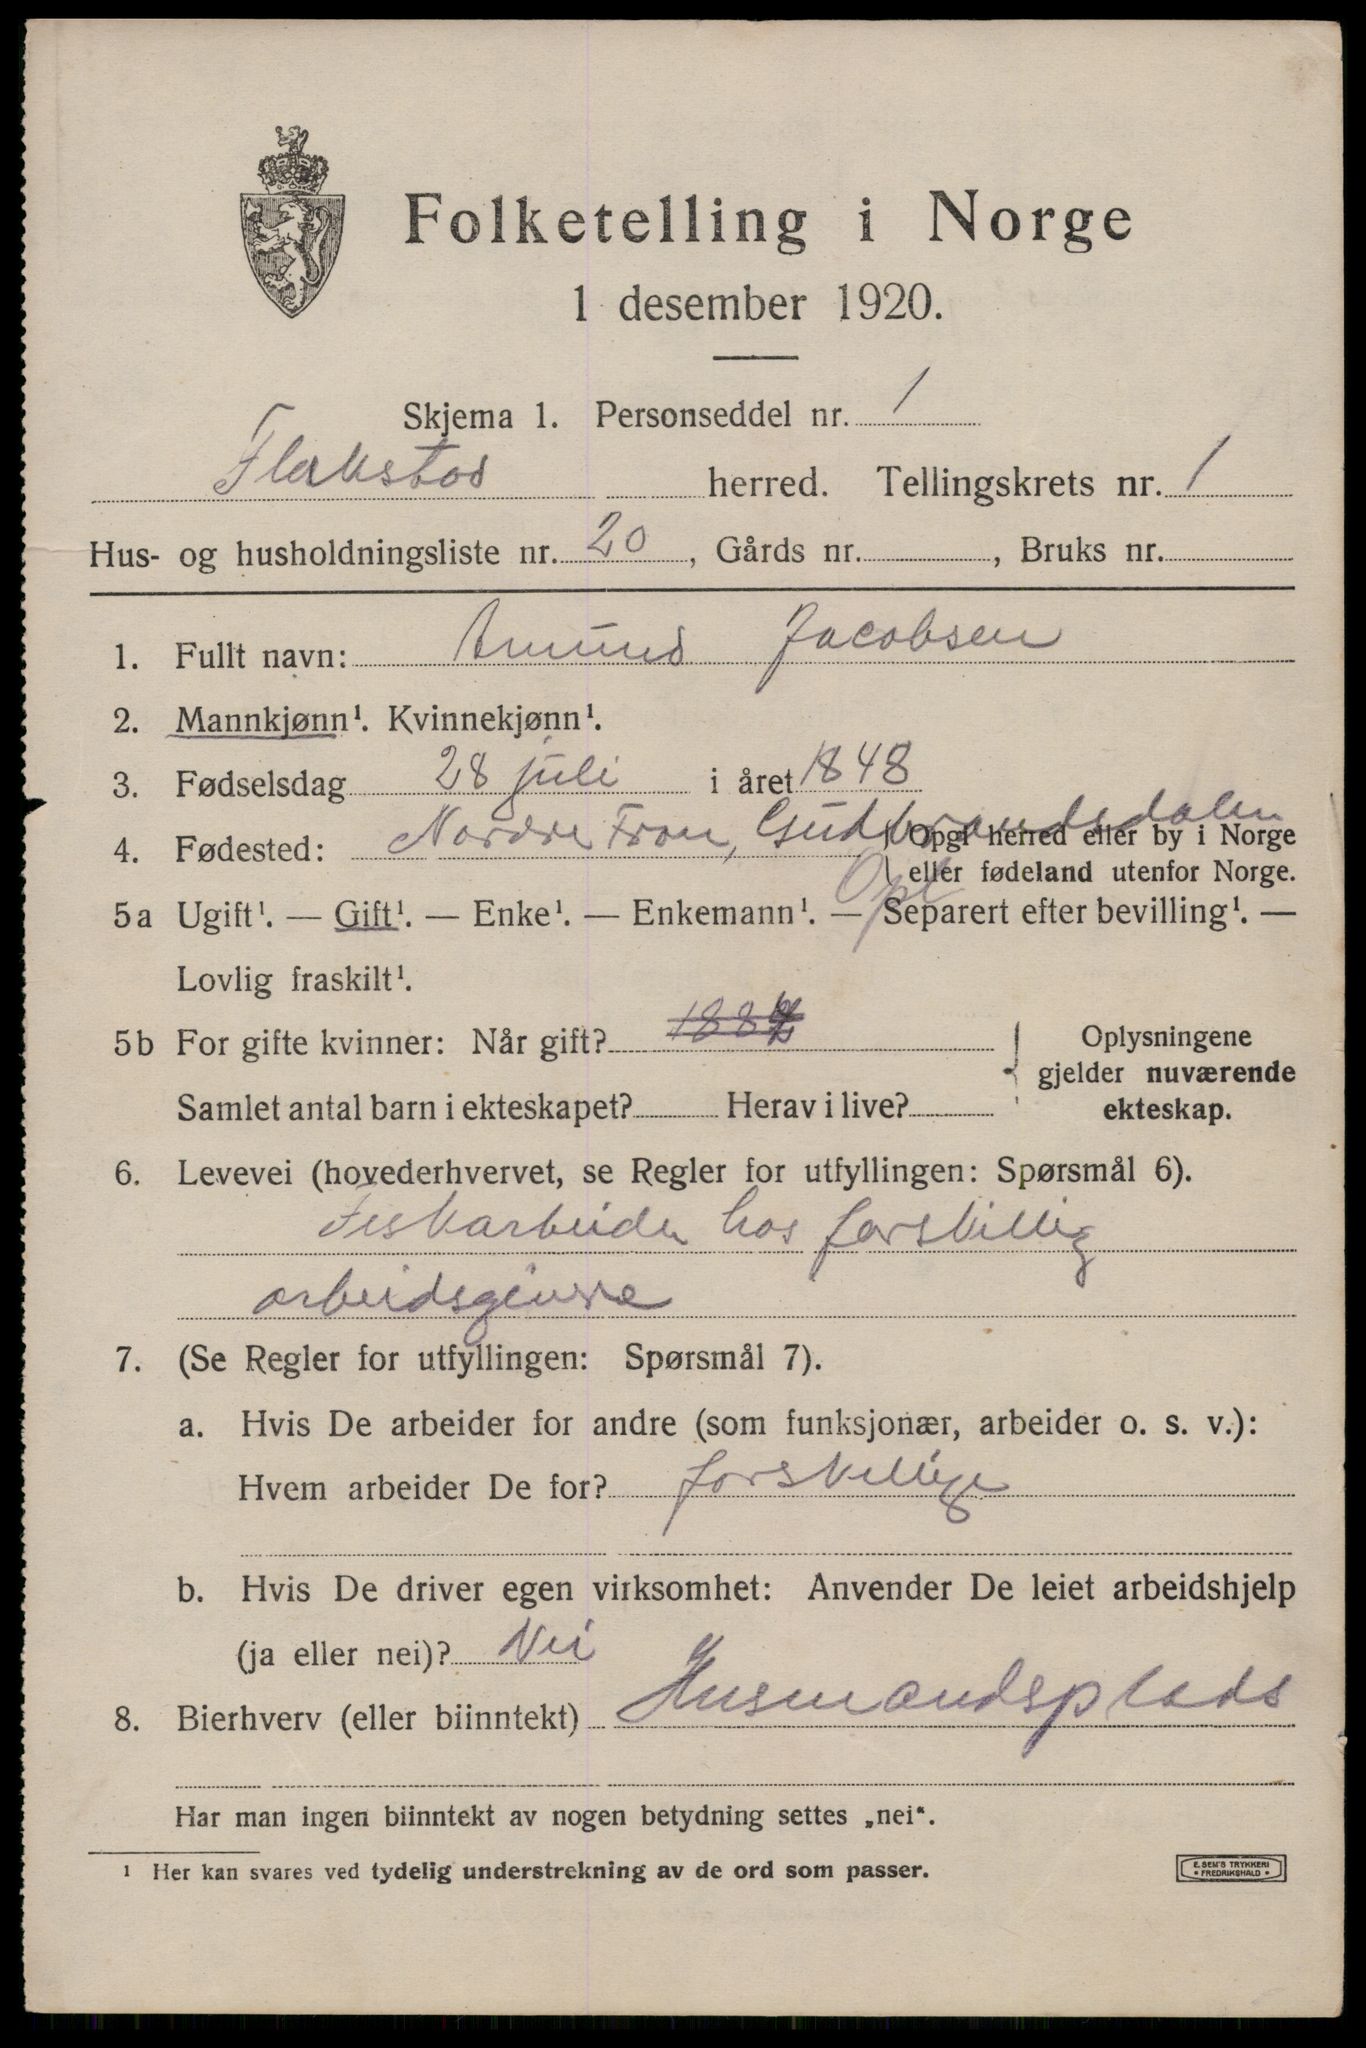 Folketelling i Norge
1 desember 1920.
Skjema 1. Personseddel nr. 1
Flakstad herred. Tellingskrets nr. 1
Hus- og husholdningsliste nr. 20, Gårds nr. , Bruks nr.
1. Fullt navn: Amund Jacobsen
2. Mannkjønn¹. Kvinnekjønn¹.
3. Fødselsdag 28 juli i året 1848
4. Fødested: Nordre Fron, Gudbrandsdalen
Opgi herred eller by i Norge
eller fødeland utenfor Norge.
Opl
5a Ugift¹. — Gift¹. — Enke¹. — Enkemann¹. — Separert efter bevilling¹. —
Lovlig fraskilt¹.
5b For gifte kvinner: Når gift?
Samlet antal barn i ekteskapet? Herav i live?
Oplysningene
gjelder nuværende
ekteskap.
6. Levevei (hovederhvervet, se Regler for utfyllingen: Spørsmål 6).
Fiskarbeider hos forskillig
arbeidsgivere
7. (Se Regler for utfyllingen: Spørsmål 7).
a. Hvis De arbeider for andre (som funksjonær, arbeider o. s. v.):
Hvem arbeider De for? forskillige
b. Hvis De driver egen virksomhet: Anvender De leiet arbeidshjelp
(ja eller nei)? Nei
8. Bierhverv (eller biinntekt) Husmandsplads
Har man ingen biinntekt av nogen betydning settes „nei“.
¹ Her kan svares ved tydelig understrekning av de ord som passer.
E. SEM'S TRYKKERI
FREDRIKSHALD